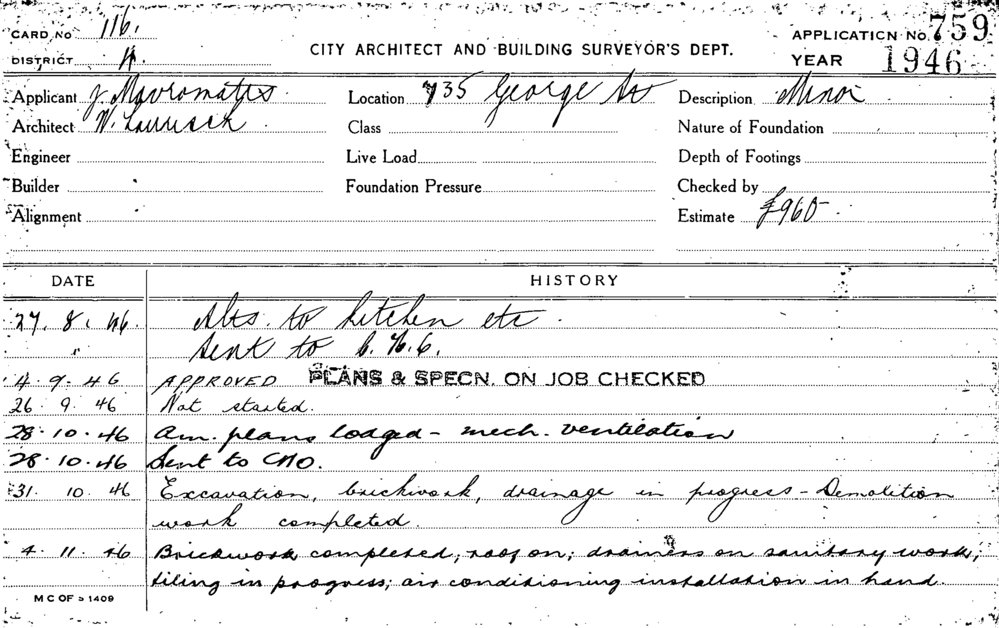 CARD No 116.
DISTRICT 4.
CITY ARCHITECT AND BUILDING SURVEYOR'S DEPT.
APPLICATION No. 759
YEAR 1946
Applicant J. Mavromatis
Location 735 George St
Description Minor
Architect W.
Class
Nature of Foundation
Engineer
Live Load
Depth of Footings
Builder
Foundation Pressure
Checked by
Alignment
Estimate £960-.
DATE HISTORY
27. 8. 46. Alts. to kitchen etc.
" Sent to
4. 9. 46 APPROVED PLANS & SPECN. ON JOB CHECKED
26. 9. 46 Not started.
28. 10. 46 Am. plans lodged - mech. ventilation
28. 10. 46 Sent to CMO.
31. 10. 46 Excavation, brickwork, drainage in progress - Demolition
work completed.
4. 11. 46 Brickwork completed; roof on; drainers on sanitary work;
tiling in progress; air conditioning installation in hand.
M C OF S 1409